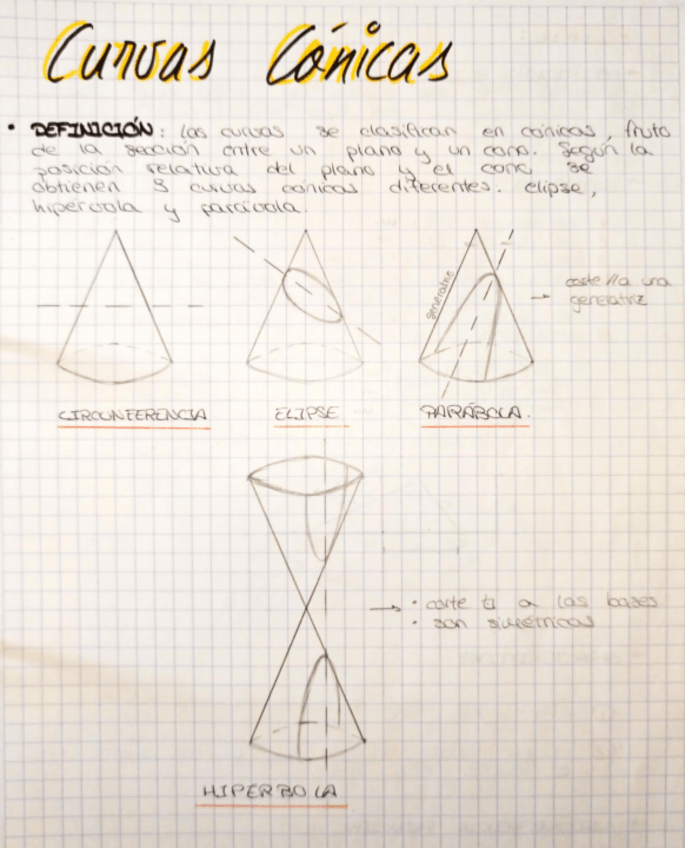 Curvas Cónicas
• DEFINICIÓN: Las curvas se clasifican en cónicas, fruto
de la sección entre un plano y un cono. Según la
posición relativa del plano y el cono se
obtienen 3 curvas cónicas diferentes. elipse,
hipérvola y parávola.
generatriz
→ corte //a una
generatriz
CIRCUNFERENCIA
ELIPSE
PARÁBOLA.
→ • corte a las bases
• son simétricas
HIPERBOLA